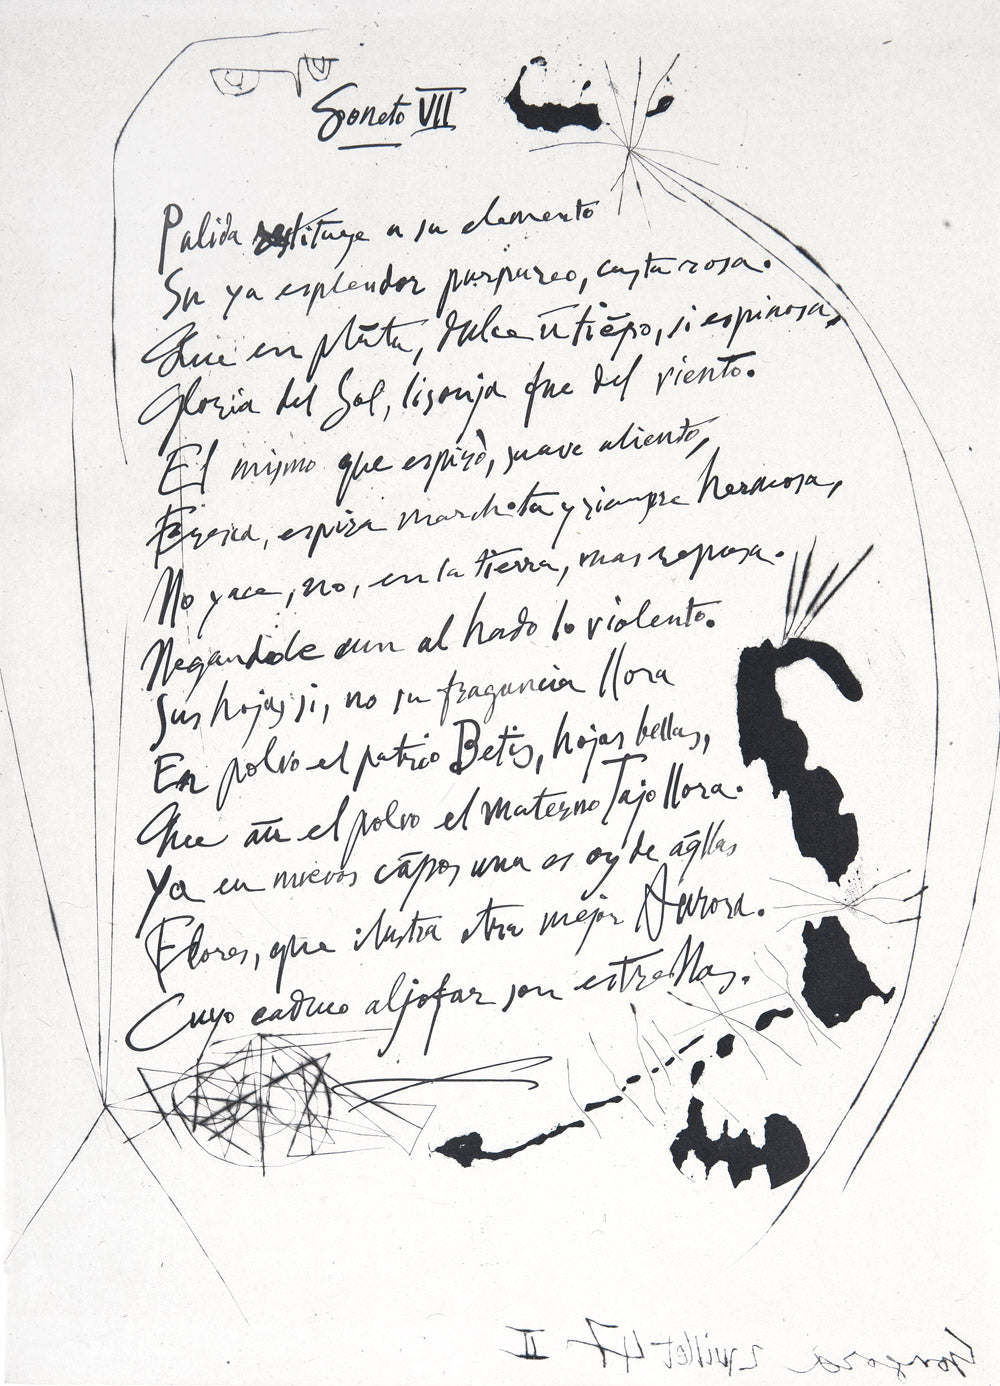 Soneto VII
Palida restituye a su elemento
Su ya esplendor purpureo, casta rosa.
Que en plāta, dulce ū tiēpo, si espinosa,
Gloria del Sol, lisonja fue del viento.
El mismo que espiró, suave aliento,
Fresca, espira marchita y siempre hermosa,
No yace, no, en la tierra, mas reposa.
Negandole aun al hado lo violento.
Sus hojas si, no su fragancia llora
En polvo el patrio Betis, hojas bellas,
Que aū el polvo el materno Tajo llora.
Ya en nuevos cāpos una es oy de aq̄llas
Flores, que ilustra otra mejor Aurora.
Cuyo caduco aljofar son estrellas.
Gongora 2 juillet 47 II